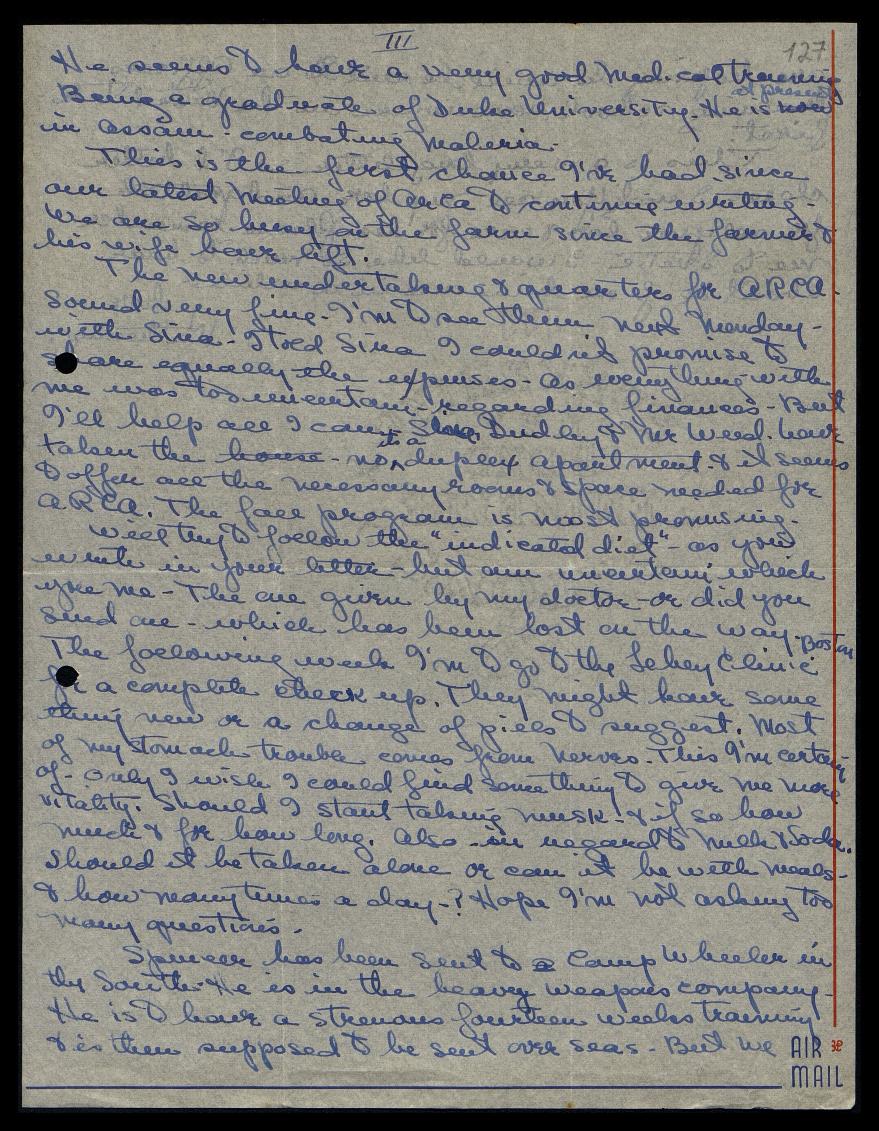 III
127
He seems to have a very good medical training
at present
Being a graduate of Duke University. He is now
in Assam - combating Maleria.
This is the first chance I've had since
our latest meeting of ARCA to continue writing -
We are so busy on the farm since the farmer &
his wife have left.
The new undertaking & quarters for ARCA -
sound very fine - I'm to see them next Monday -
with Sina - I told Sina I couldn't promise to
share equally the expenses - as everything with
me was too uncertain - regarding finances - But
I'll help all I can - Sina, Dudley & Mr Weed have
it a
taken the house - no, duplex apartment & it seems
to offer all the necessary rooms & space needed for
ARCA. The fall program is most promising.
Will try to follow the "indicated diet" - as you
write in your letter - but am uncertain which
you me - The one given by my doctor - or did you
send one - which has been lost on the way.
Boston
The following week I'm to go to the Lehey Clinic
for a complete check up. They might have some
thing new or a change of pills to suggest. Most
of my stomach trouble comes from nerves. This I'm certain
of - Only I wish I could find something to give me more
vitality. Should I start taking musk - & if so how
much & for how long. Also - in regard to Milk & Soda.
Should it be taken alone or can it be with meals -
& how many times a day - ? Hope I'm not asking too
many questions.
Spencer has been sent to a Camp Wheeler in
the South. He is in the heavy weapons company -
He is to have a strenous fourteen weeks training
& is then supposed to be sent over seas - But we
AIR
MAIL